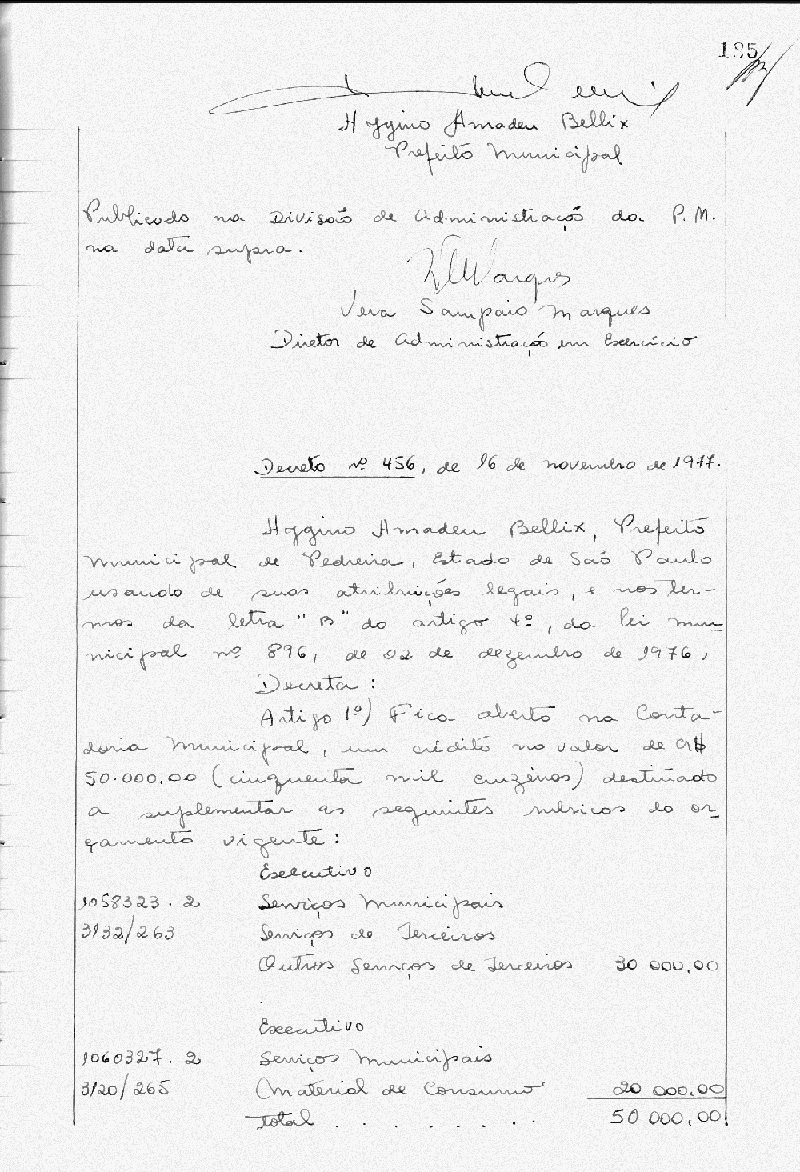 195
Hyggino Amadeu Bellix
Prefeito Municipal
Publicado na Divisão de Administração da P.M.
na data supra.
VSMarques
Vera Sampaio Marques
Diretor de Administração em Exercício
Decreto nº 456, de 16 de novembro de 1977.
Hyggino Amadeu Bellix, Prefeito
Municipal de Pedreira, Estado de São Paulo
usando de suas atribuições legais, e nos ter-
mos da letra "B" do artigo 4º, da lei mu-
nicipal nº 896, de 02 de dezembro de 1976,
Decreta:
Artigo 1º) Fica aberto na Conta-
doria Municipal, um crédito no valor de CR$
50.000.00 (cinquenta mil cruzeiros) destinado
a suplementar as seguintes rubricas do or-
çamento vigente:
Executivo
1058323.2 Serviços Municipais
3132/263 Serviços de Terceiros
Outros Serviços de Terceiros 30 000,00
Executivo
1060327.2 Serviços Municipais
3120/265 Material de Consumo 20 000.00
total . . . . . . . 50 000,00